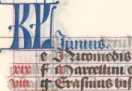 KL Junius.
e Nicomedis
xix f Marcellini
viii g Erasmus bi